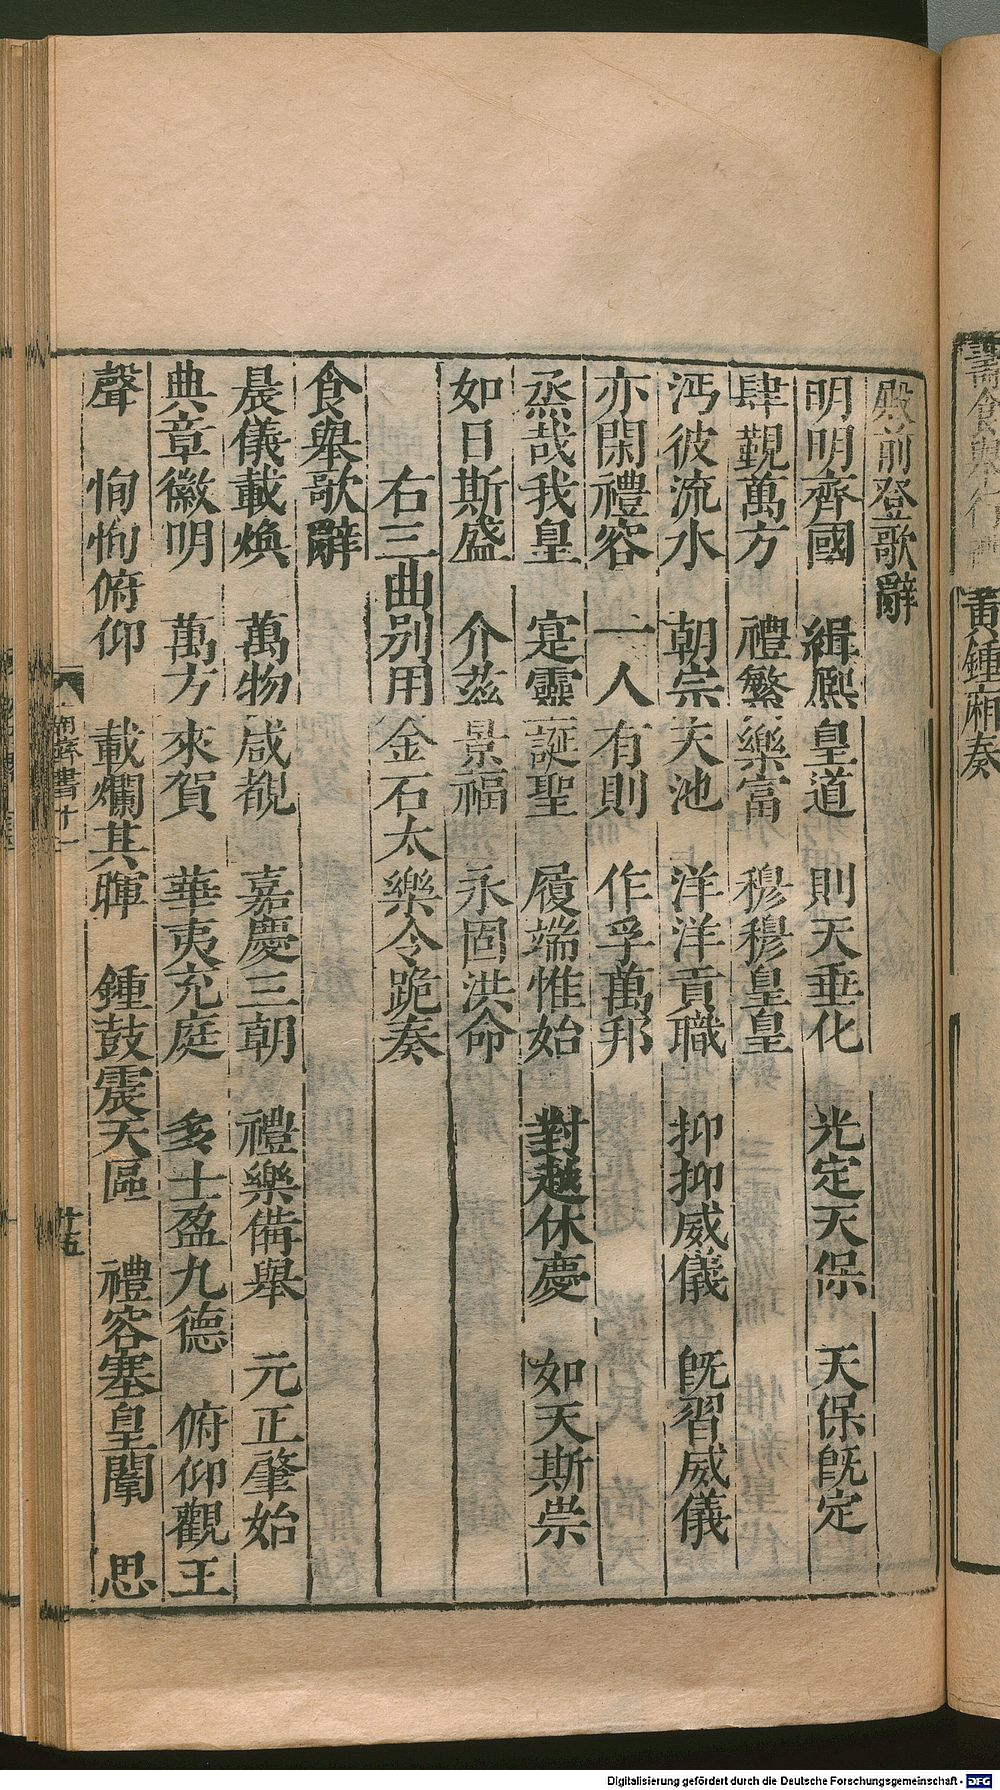 黄鍾廂奏
殿前登歌辭
明明齊國　緝熈皇道　則天垂化　光定天保　天保旣定
肆覲萬方　禮繁樂富　穆穆皇皇
沔彼流水　朝宗天池　洋洋貢職　抑抑威儀　旣習威儀
亦閑禮容　一人有則　作孚萬邦
烝哉我皇　寔靈誕聖　履端惟始　對越休慶　如天斯崇
如日斯盛　介茲景福　永固洪命
右三曲别用金石太樂令跪奏
食舉歌辭
晨儀載煥　萬物咸覩　嘉慶三朝　禮樂備舉　元正肇始
典章徽明　萬方來賀　華夷充庭　多士盈九德　俯仰觀王
聲　恂恂俯仰　載爛其暉　鍾鼓震天區　禮容塞皇闈　思
十五
Digitalisierung gefördert durch die Deutsche Forschungsgemeinschaft - DFG